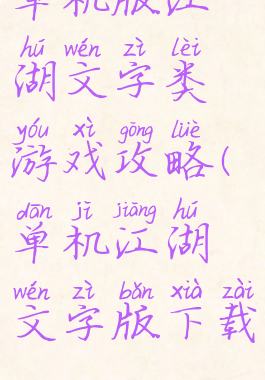 单机版江
hú wén zì lèi
湖文字类
yóu xì gōng lüè
游戏攻略(
dān jī jiāng hú
单机江湖
wén zì bǎn xià zài
文字版下载